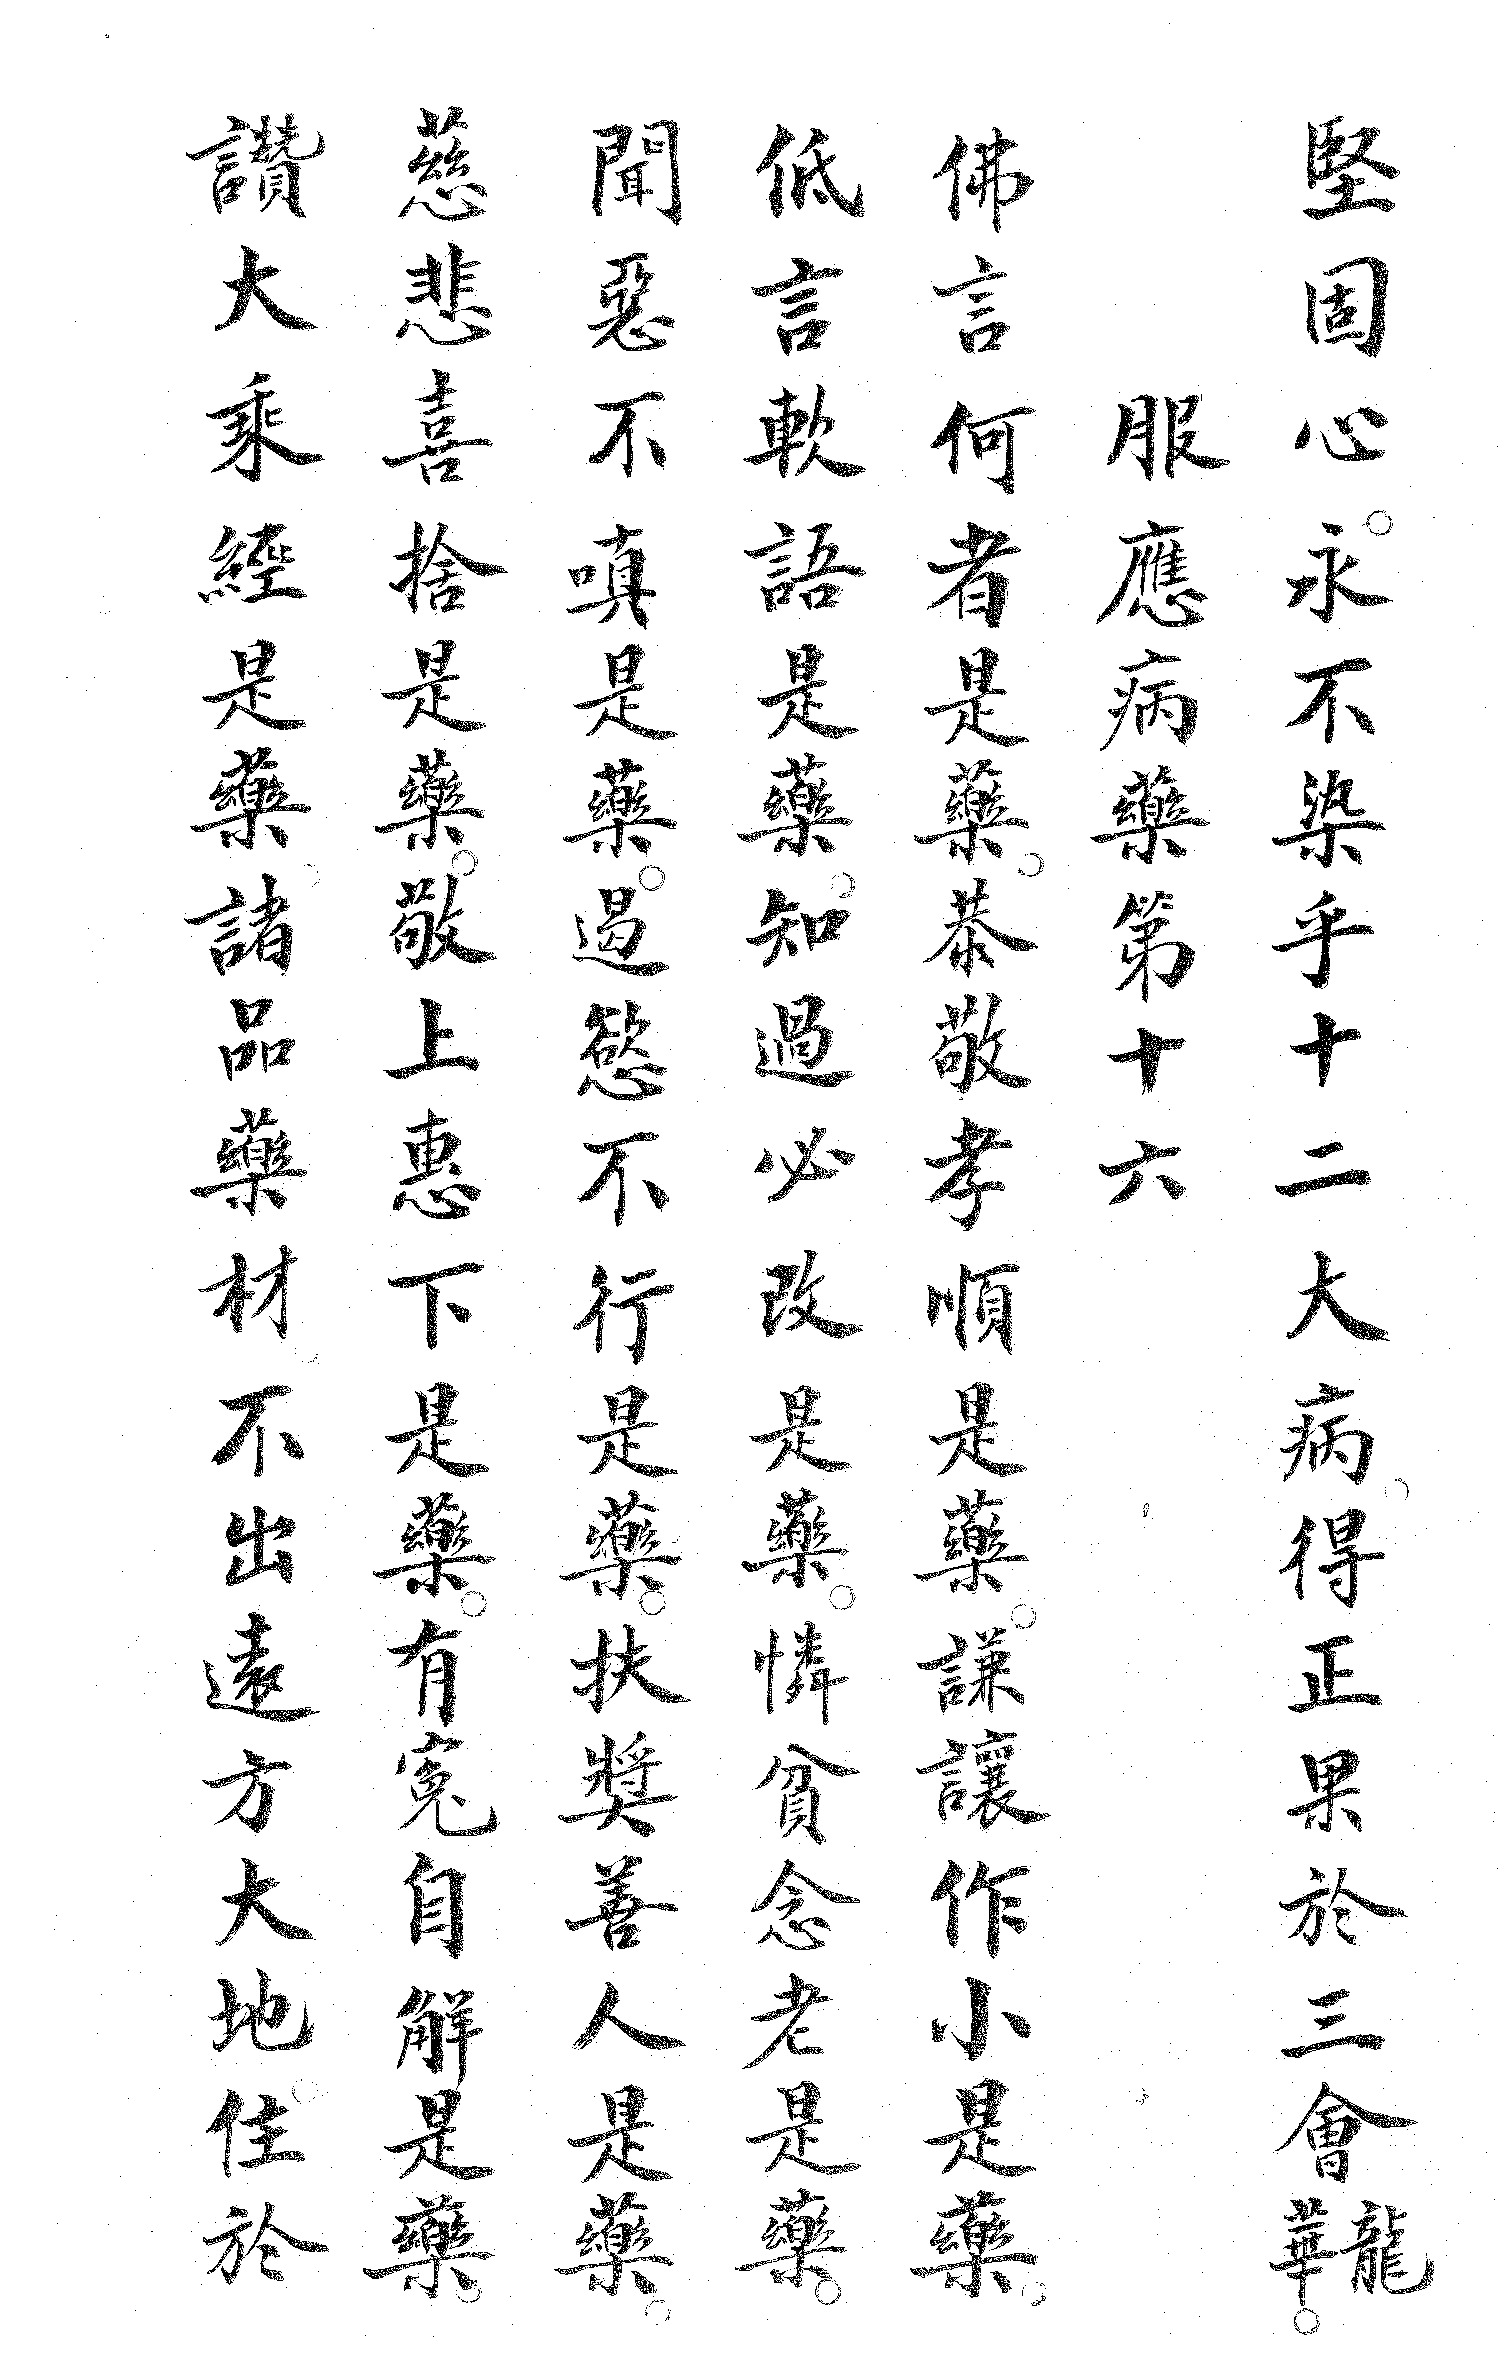 堅固心。永不染乎十二大病。得正果於三會龍華。
服應病藥第十六
佛言何者是藥。恭敬孝順是藥。謙讓作小是藥。
低言軟語是藥。知過必改是藥。憐貧念老是藥。
聞惡不嗔是藥。遏慾不行是藥。扶獎善人是藥。
慈悲喜捨是藥。敬上惠下是藥。有寃自解是藥。
讚大乘經是藥。諸品藥材。不出遠方大地。住於